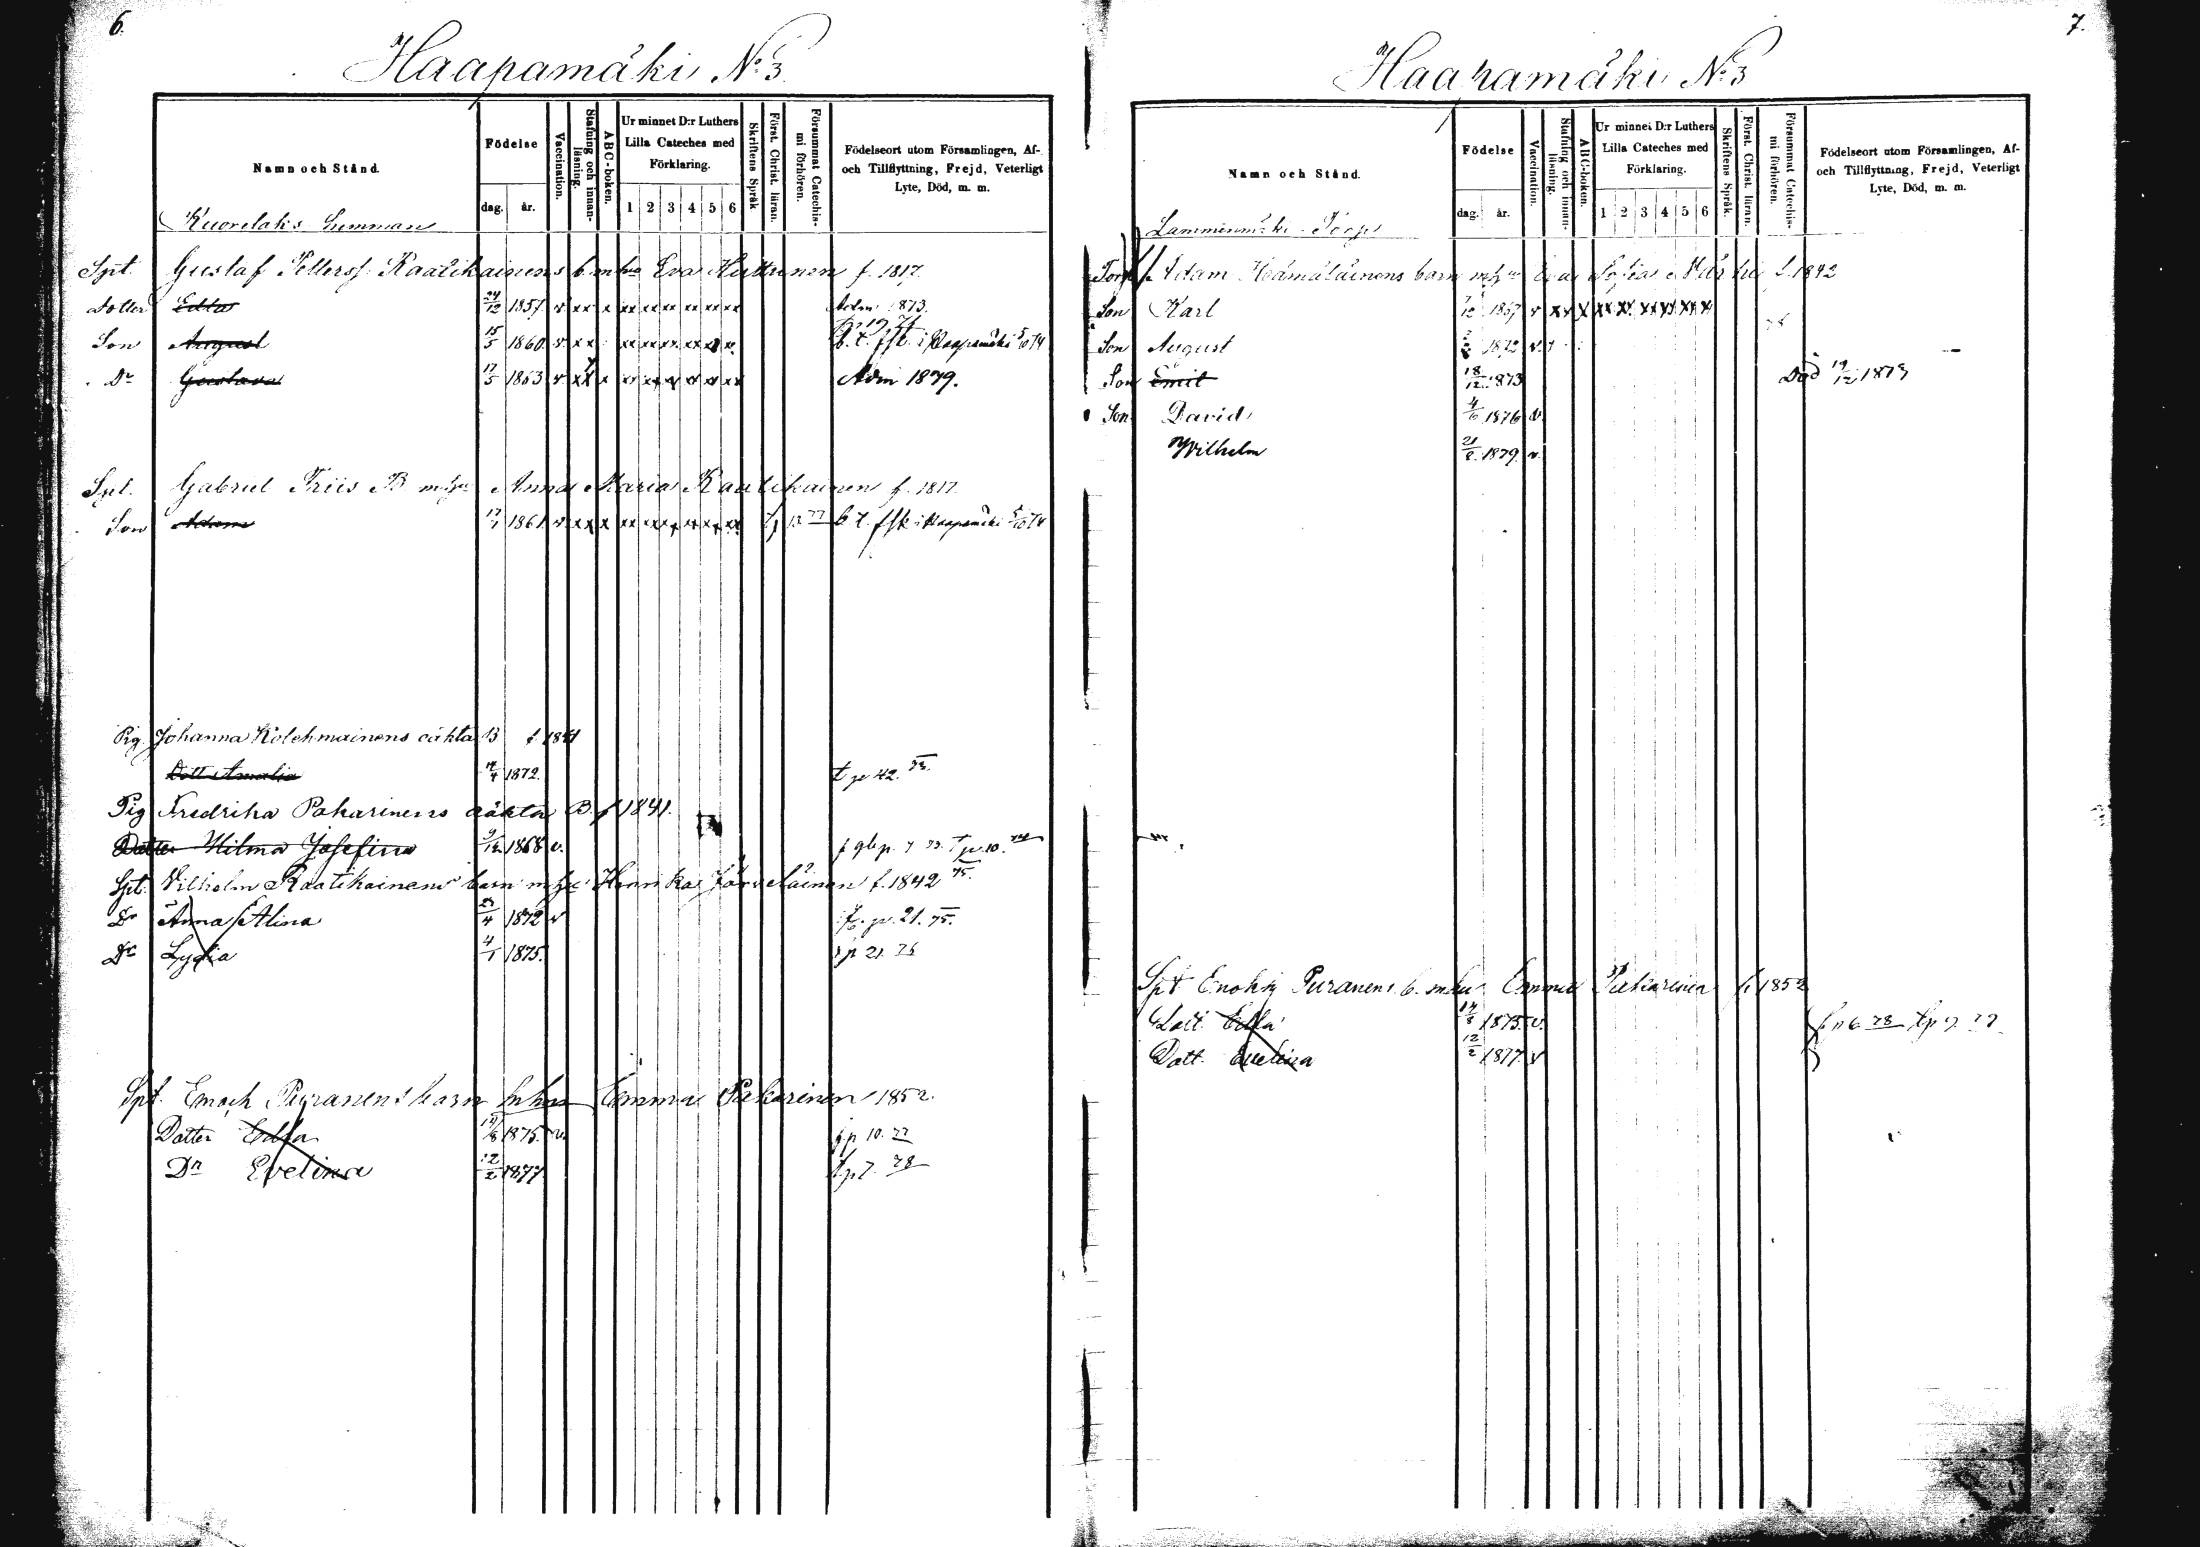 6.
Haapamäki No 3
Namn och Stånd.
Födelse
dag. år.
Vaccination.
Stafning och innanläsning.
ABC-boken.
Ur minnet D:r Luthers Lilla Cateches med Förklaring.
1 2 3 4 5 6
Skriftens Språk
Först. Christ. läran.
Försummat Catechismi förhören.
Födelseort utom Församlingen, Af- och Tillflyttning, Frejd, Veterligt Lyte, Död, m. m.
Kuorelaks
Spt. Gustaf Raatikainens b. m hu Eva Huttunen f. 1817.
Dotter Edla 24/12 1857 v xx x xx xx xx xx xx xx Adm 1873.
Son August 15/5 1860 v xx b. t. fsk i Haapamäki 5/10 74
Dr Gustava 17/5 1863 v xx x Adm 1879.
Spt. Gabriel Friis B m hu Anna Maria Raatikainen f. 1817
Son Adam 1861 v xx x b. t. fsk i Haapamäki 5/10 74
Pig. Johanna Kolehmainens oäkta B f 1841
Dott Amalia 1872. t p 42. 73.
Pig Fredrika Pakarinens oäkta B. f 1841.
Dotter Hilma Josefina 9/12 1868 v.
Spt. Vilhelm Raatikainens barn m hu Henrika f. 1842
Dr Anna Alina 23/4 1872 v p. 21. 75.
Dr Lydia 4/1 1875. p 21 76
Spt. Enoch Puranens barn m hu Emma Pakarinen 1852.
Dotter Edla 1875. v. f. p 10. 77
Dr Evelina 12/2 1877 t p 7. 78
7.
Haapamäki No 3
Namn och Stånd.
Födelse
dag. år.
Vaccination.
Stafning och innanläsning.
ABC-boken.
Ur minnet D:r Luthers Lilla Cateches med Förklaring.
1 2 3 4 5 6
Skriftens Språk.
Först. Christ. läran.
Försummat Catechismi förhören.
Födelseort utom Församlingen, Af- och Tillflyttning, Frejd, Veterligt Lyte, Död, m. m.
Lamminmäki Torp
Adam Hämäläinens barn m hu Eva Sofia f. 1842
Son Karl 1867 v xx x
Son August 1872 v.
Son Emil 18/12 1873 Död 19/12 1879
Son David 4/6 1876 v.
Wilhelm 1879 v.
Spt Enok Puranens b. m hu Emma Pakarinen f. 1852
Dott. Edla 1875 v. f. p 6 78
Dott. Evelina 12/2 1877 v